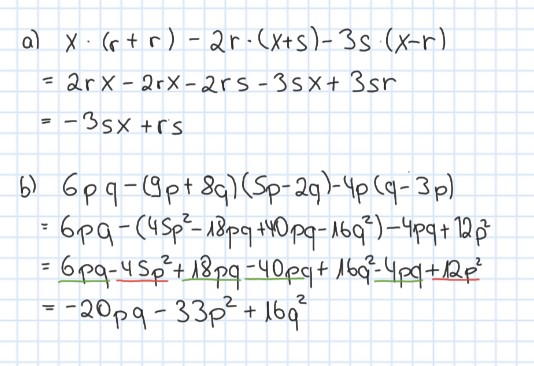 a) x · (r + r) - 2r · (x+s) - 3s · (x-r)
= 2rx - 2rx - 2rs - 3sx + 3sr
= -3sx + rs
b) 6pq - (9p + 8q)(5p - 2q) - 4p(q - 3p)
= 6pq - (45p² - 18pq + 40pq - 16q²) - 4pq + 12p²
= 6pq - 45p² + 18pq - 40pq + 16q² - 4pq + 12p²
= -20pq - 33p² + 16q²